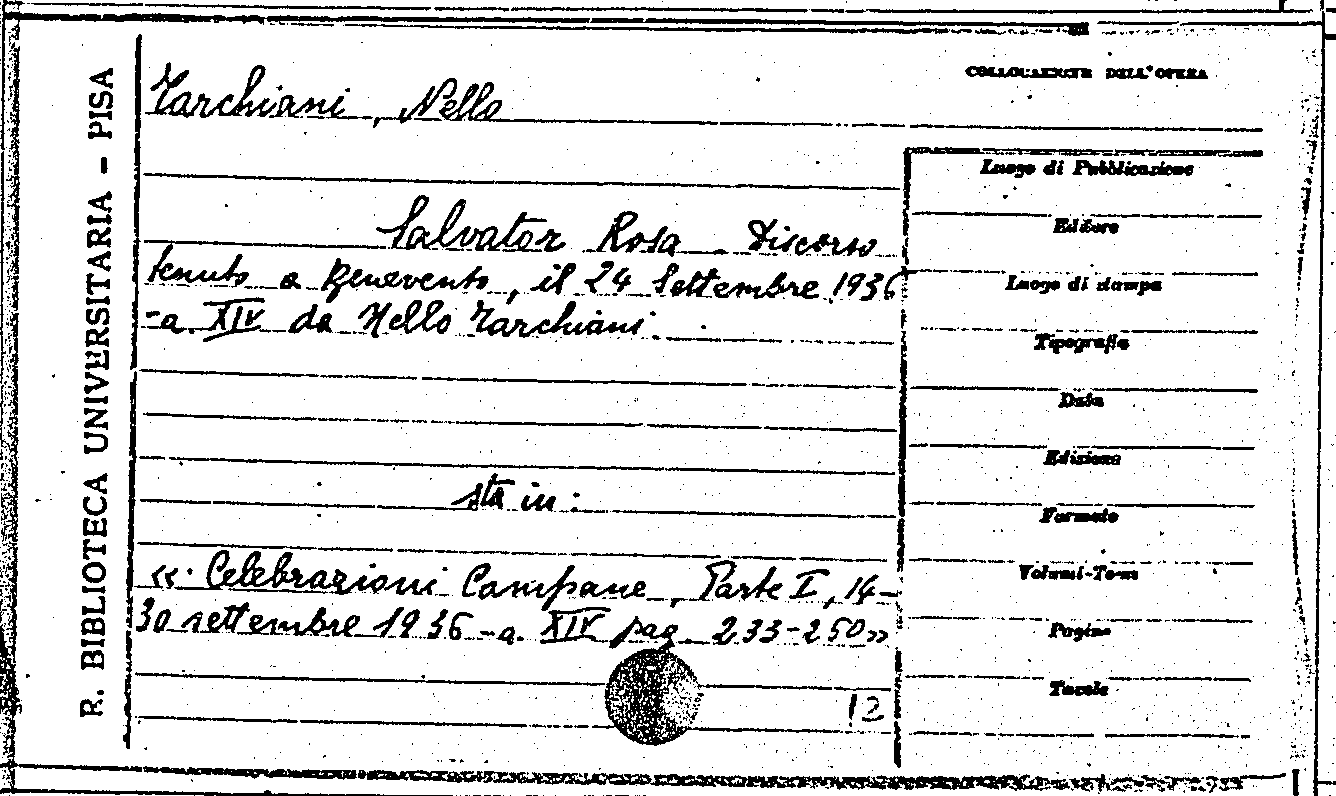 R. BIBLIOTECA UNIVERSITARIA - PISA
COLLOCAZIONE DELL'OPERA
Tarchiani, Nello
Salvator Rosa - Discorso
tenuto a Benevento, il 24 Settembre 1936
-a. XIV da Nello Tarchiani.
sta in:
«Celebrazioni Campane, Parte I, 14-
30 settembre 1936 -a. XIV pag. 233-250»
12
Luogo di Pubblicazione
Editore
Luogo di stampa
Tipografia
Data
Edizione
Formato
Volumi-Tomi
Pagine
Tavole